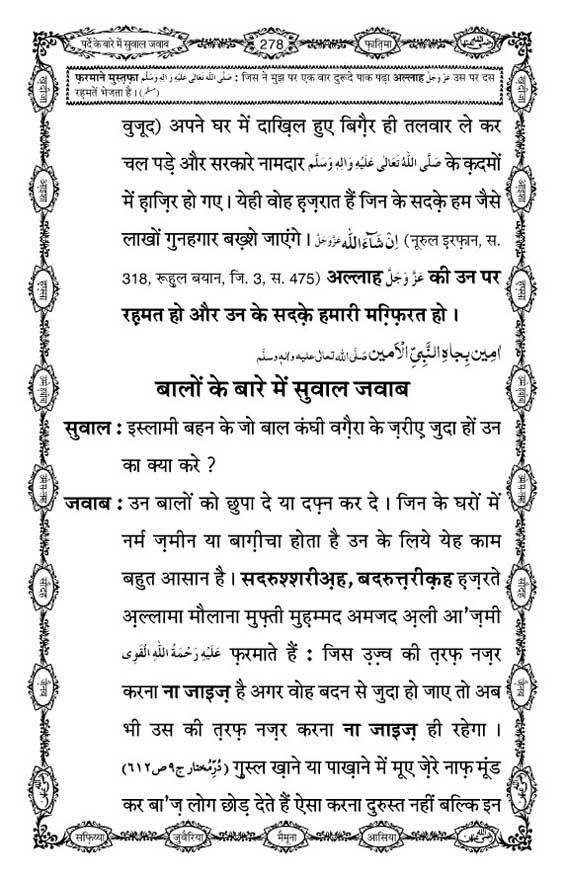 पर्दे के बारे में सुवाल जवाब
278
फ़ातिमा
फ़रमाने मुस्तफ़ा صَلَّى اللهُ تَعَالٰى عَلَيْهِ وَاٰلِهٖ وَسَلَّم : जिस ने मुझ पर एक बार दुरूदे पाक पढ़ा अल्लाह عَزَّ وَجَلَّ उस पर दस
रहमतें भेजता है । (مسلم)
वुजूद) अपने घर में दाख़िल हुए बिग़ैर ही तलवार ले कर
चल पड़े और सरकारे नामदार صَلَّى اللهُ تَعَالٰى عَلَيْهِ وَاٰلِهٖ وَسَلَّم के क़दमों
में हाज़िर हो गए । येही वोह हज़रात हैं जिन के सदके हम जैसे
लाखों गुनहगार बख़्शे जाएंगे । اِنْ شَآءَ اللّٰه عَزَّوَجَلَّ (नूरुल इरफ़ान, स.
318, रूहुल बयान, जि. 3, स. 475) अल्लाह عَزَّ وَجَلَّ की उन पर
रहमत हो और उन के सदक़े हमारी मग़्फ़िरत हो ।
اٰمِين بِجَاهِ النَّبِيِّ الْاَمين صَلَّى الله تعالى عليه واٰلهٖ وسلَّم
बालों के बारे में सुवाल जवाब
सुवाल : इस्लामी बहन के जो बाल कंघी वग़ैरा के ज़रीए जुदा हों उन
का क्या करे ?
जवाब : उन बालों को छुपा दे या दफ़्न कर दे । जिन के घरों में
नर्म ज़मीन या बाग़ीचा होता है उन के लिये येह काम
बहुत आसान है । सदरुश्शरीअ़ह, बदरुत्तरीक़ह हज़रते
अ़ल्लामा मौलाना मुफ़्ती मुहम्मद अमजद अ़ली आ'ज़मी
عَلَيْهِ رَحْمَةُ اللهِ الْقَوِى फ़रमाते हैं : जिस उ़ज़्व की त़रफ़ नज़र
करना ना जाइज़ है अगर वोह बदन से जुदा हो जाए तो अब
भी उस की त़रफ़ नज़र करना ना जाइज़ ही रहेगा ।
(دُرِّمُختار ج۹ ص۶۱۲) ग़ुस्ल ख़ाने या पाख़ाने में मूए ज़ेरे नाफ़ मूंड
कर बा'ज़ लोग छोड़ देते हैं ऐसा करना दुरुस्त नहीं बल्कि इन
सफ़िय्या
जुवैरिया
मैमूना
आसिया